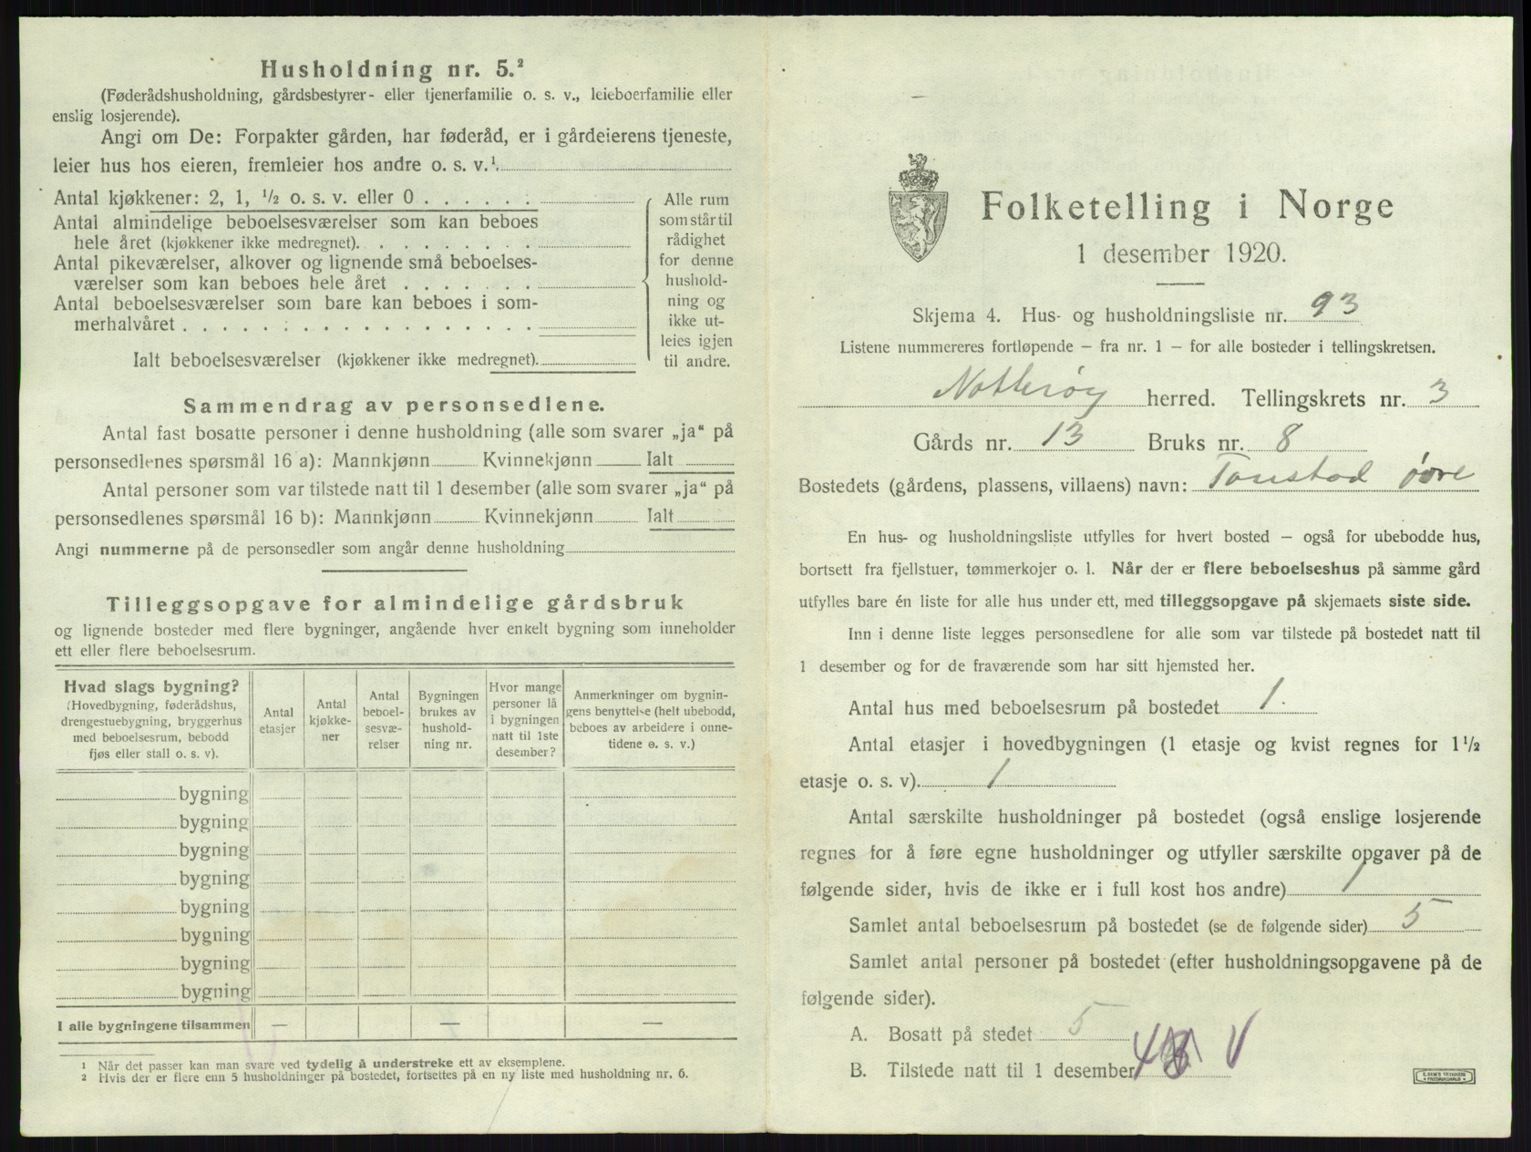 Husholdning nr. 5.²
(Føderådshusholdning, gårdsbestyrer- eller tjenerfamilie o. s. v., leieboerfamilie eller
enslig losjerende).
Angi om De: Forpakter gården, har føderåd, er i gårdeierens tjeneste,
leier hus hos eieren, fremleier hos andre o. s. v.¹
Antal kjøkkener: 2, 1, ½ o. s. v. eller 0 . . . . . .
Antal almindelige beboelsesværelser som kan beboes
hele året (kjøkkener ikke medregnet). . . . . . . . .
Antal pikeværelser, alkover og lignende små beboelses-
værelser som kan beboes hele året . . . . . . .
Antal beboelsesværelser som bare kan beboes i som-
merhalvåret . . . . . . . . . . . . . . . . . .
Ialt beboelsesværelser (kjøkkener ikke medregnet).
Alle rum
som står til
rådighet
for denne
hushold-
ning og
ikke ut-
leies igjen
til andre.
Sammendrag av personsedlene.
Antal fast bosatte personer i denne husholdning (alle som svarer „ja“ på
personsedlenes spørsmål 16 a): Mannkjønn Kvinnekjønn Ialt
Antal personer som var tilstede natt til 1 desember (alle som svarer „ja“ på
personsedlenes spørsmål 16 b): Mannkjønn Kvinnekjønn Ialt
Angi nummerne på de personsedler som angår denne husholdning
Tilleggsopgave for almindelige gårdsbruk
og lignende bosteder med flere bygninger, angående hver enkelt bygning som inneholder
ett eller flere beboelsesrum.
Hvad slags bygning?
(Hovedbygning, føderådshus,
drengestuebygning, bryggerhus
med beboelsesrum, bebodd
fjøs eller stall o. s. v).
Antal
etasjer
Antal
kjøkke-
ner
Antal
beboel-
sesvæ-
relser
Bygningen
brukes av
hushold-
ning nr.
Hvor mange
personer lå
i bygningen
natt til 1ste
desember?
Anmerkninger om bygnin-
gens benyttelse (helt ubebodd,
beboes av arbeidere i onne-
tidene o. s. v.)
bygning
bygning
bygning
bygning
bygning
bygning
bygning
bygning
I alle bygningene tilsammen — — —
¹ Når det passer kan man svare ved tydelig å understreke ett av eksemplene.
² Hvis der er flere enn 5 husholdninger på bostedet, fortsettes på en ny liste med husholdning nr. 6.
Folketelling i Norge
1 desember 1920.
Skjema 4. Hus- og husholdningsliste nr. 93
Listene nummereres fortløpende — fra nr. 1 — for alle bosteder i tellingskretsen.
Nøtterøy herred. Tellingskrets nr. 3
Gårds nr. 13 Bruks nr. 8
Bostedets (gårdens, plassens, villaens) navn: Tonstad øvre
En hus- og husholdningsliste utfylles for hvert bosted — også for ubebodde hus,
bortsett fra fjellstuer, tømmerkojer o. l. Når der er flere beboelseshus på samme gård
utfylles bare én liste for alle hus under ett, med tilleggsopgave på skjemaets siste side.
Inn i denne liste legges personsedlene for alle som var tilstede på bostedet natt til
1 desember og for de fraværende som har sitt hjemsted her.
Antal hus med beboelsesrum på bostedet 1.
Antal etasjer i hovedbygningen (1 etasje og kvist regnes for 1½
etasje o. s. v). 1
Antal særskilte husholdninger på bostedet (også enslige losjerende
regnes for å føre egne husholdninger og utfyller særskilte opgaver på de
følgende sider, hvis de ikke er i full kost hos andre) 1
Samlet antal beboelsesrum på bostedet (se de følgende sider) 5
Samlet antal personer på bostedet (efter husholdningsopgavene på de
følgende sider).
A. Bosatt på stedet 5
B. Tilstede natt til 1 desember 4